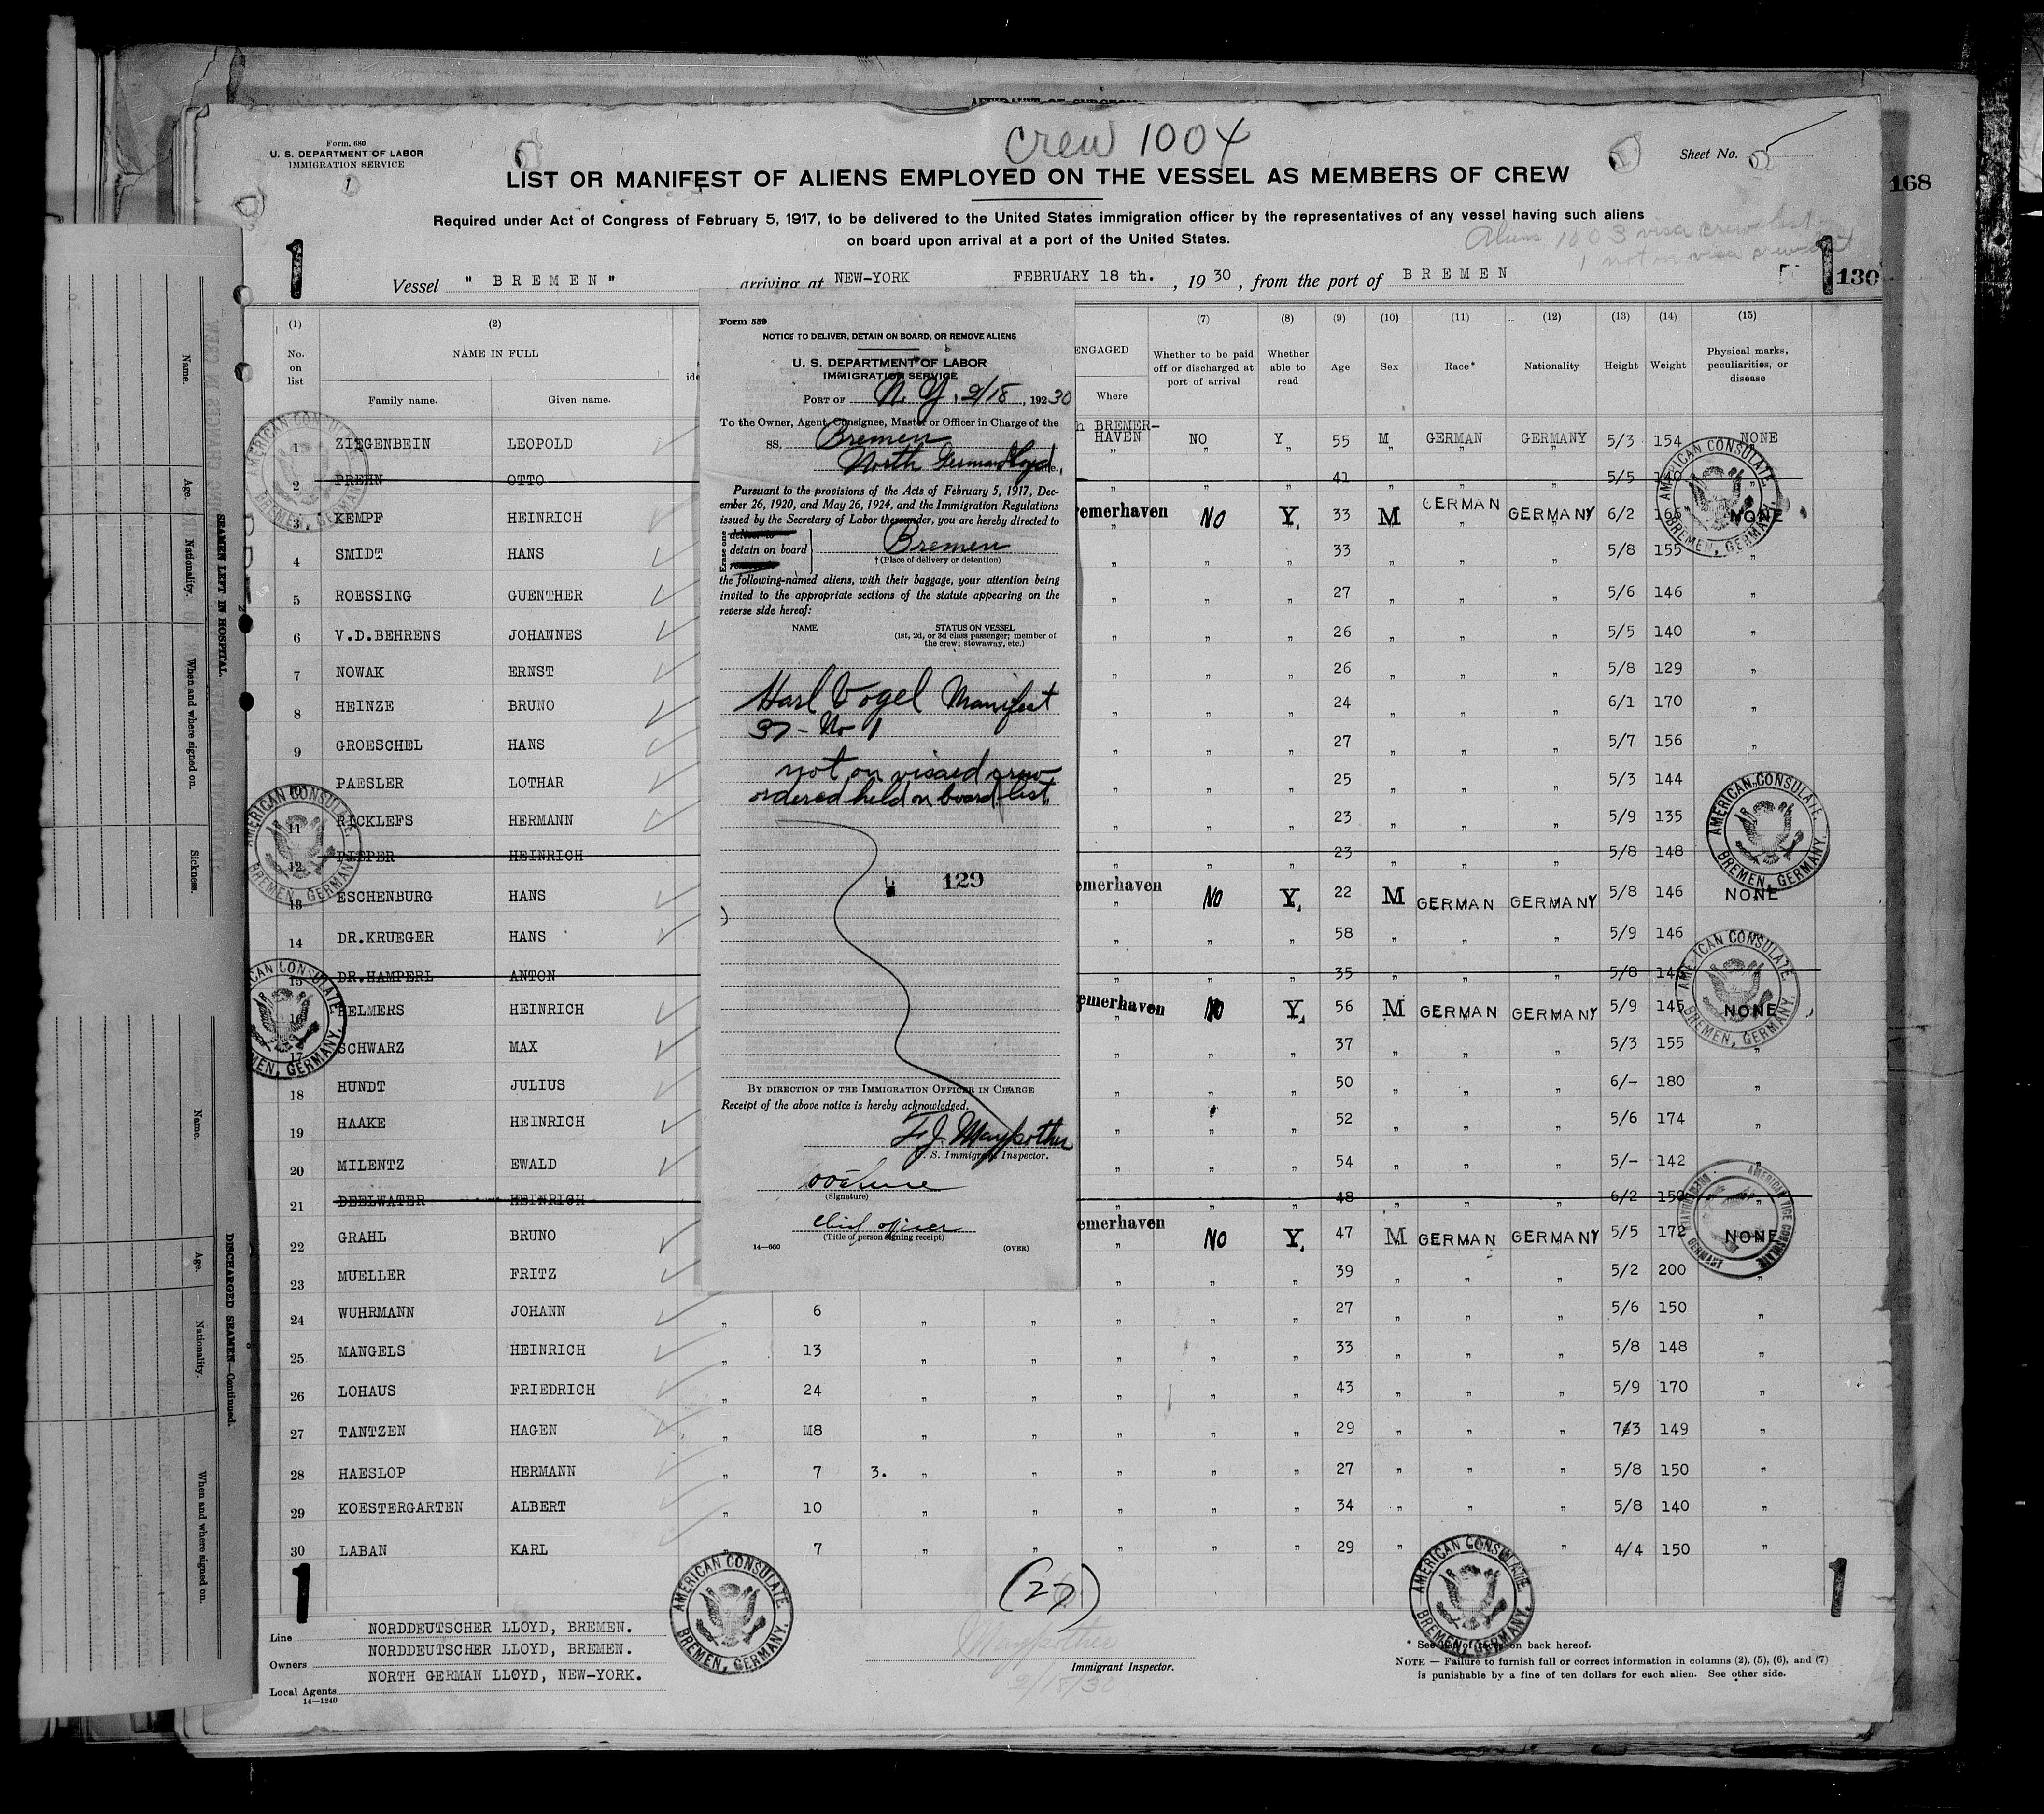 crew 1004
Form. 680
U. S. DEPARTMENT OF LABOR
IMMIGRATION SERVICE
Sheet No.
LIST OR MANIFEST OF ALIENS EMPLOYED ON THE VESSEL AS MEMBERS OF CREW
168
Required under Act of Congress of February 5, 1917, to be delivered to the United States immigration officer by the representatives of any vessel having such aliens
on board upon arrival at a port of the United States.
Aliens 1003 visa crew list
1 not on visa crew list
1 1 130
Vessel " BREMEN " arriving at NEW-YORK FEBRUARY 18 th. , 19 30 , from the port of BREMEN
(1) (2) (7) (8) (9) (10) (11) (12) (13) (14) (15)
No. on list NAME IN FULL ENGAGED Whether to be paid off or discharged at port of arrival Whether able to read Age Sex Race* Nationality Height Weight Physical marks, peculiarities, or disease
Family name. Given name. Where
1 ZIEGENBEIN LEOPOLD BREMER-HAVEN NO Y 55 M GERMAN GERMANY 5/3 154 NONE
2 PREHN OTTO " " " 41 5/5 "
3 KEMPF HEINRICH emerhaven NO Y 33 M GERMAN GERMANY 6/2 166 NONE
4 SMIDT HANS " " " 33 " " " 5/8 155 "
5 ROESSING GUENTHER " " " 27 " " " 5/6 146 "
6 V.D.BEHRENS JOHANNES " " " 26 " " " 5/5 140 "
7 NOWAK ERNST " " " 26 " " " 5/8 129 "
8 HEINZE BRUNO " " " 24 " " " 6/1 170 "
9 GROESCHEL HANS " " " 27 " " " 5/7 156 "
10 PAESLER LOTHAR " " " 25 " " " 5/3 144
11 RICKLEFS HERMANN " " " 23 " " " 5/9 135
12 PIEPER HEINRICH " " " 23 " " " 5/8 148
13 ESCHENBURG HANS emerhaven NO Y 22 M GERMAN GERMANY 5/8 146 NONE
14 DR.KRUEGER HANS " " " 58 " " " 5/9 146
15 DR.HAMPERL ANTON " " " 35 " " " 5/8
16 HELMERS HEINRICH emerhaven NO Y 56 M GERMAN GERMANY 5/9 145 NONE
17 SCHWARZ MAX " " " 37 " " " 5/3 155 "
18 HUNDT JULIUS " " " 50 " " " 6/- 180 "
19 HAAKE HEINRICH " " " 52 " " " 5/6 174 "
20 MILENTZ EWALD " " " 54 " " " 5/- 142 "
21 DEELWATER HEINRICH " " " 48 " " " 6/2 150 "
22 GRAHL BRUNO emerhaven NO Y 47 M GERMAN GERMANY 5/5 172 NONE
23 MUELLER FRITZ " " " 39 " " " 5/2 200 "
24 WUHRMANN JOHANN " 6 " " " " " 27 " " " 5/6 150 "
25 MANGELS HEINRICH " 13 " " " " " 33 " " " 5/8 148 "
26 LOHAUS FRIEDRICH " 24 " " " " " 43 " " " 5/9 170 "
27 TANTZEN HAGEN " M8 " " " " " 29 " " " 149 "
28 HAESLOP HERMANN " 7 3. " " " " " 27 " " " 5/8 150 "
29 KOESTERGARTEN ALBERT " 10 " " " " " 34 " " " 5/8 140 "
30 LABAN KARL " 7 " " " " " 29 " " " 4/4 150 "
1 (27) 1
Line NORDDEUTSCHER LLOYD, BREMEN.
Owners NORDDEUTSCHER LLOYD, BREMEN.
Local Agents NORTH GERMAN LLOYD, NEW-YORK.
14—1240
Maypother
2/18/30
Immigrant Inspector.
* See list of races on back hereof.
NOTE — Failure to furnish full or correct information in columns (2), (5), (6), and (7)
is punishable by a fine of ten dollars for each alien. See other side.
Form 559
NOTICE TO DELIVER, DETAIN ON BOARD, OR REMOVE ALIENS
U. S. DEPARTMENT OF LABOR
IMMIGRATION SERVICE
PORT OF N. Y. 2/18, 192 30
To the Owner, Agent, Consignee, Master or Officer in Charge of the
SS. Bremen
North German Lloyd
Pursuant to the provisions of the Acts of February 5, 1917, Dec-
ember 26, 1920, and May 26, 1924, and the Immigration Regulations
issued by the Secretary of Labor thereunder, you are hereby directed to
Erase one
deliver to
detain on board Bremen
remove
† (Place of delivery or detention)
the following-named aliens, with their baggage, your attention being
invited to the appropriate sections of the statute appearing on the
reverse side hereof:
NAME STATUS ON VESSEL
(1st, 2d, or 3d class passenger; member of
the crew; stowaway, etc.)
Karl Vogel Manifest
37 - No 1
not on visaed crew
ordered held on board list
129
BY DIRECTION OF THE IMMIGRATION OFFICER IN CHARGE
Receipt of the above notice is hereby acknowledged.
F.J. Maypother
U. S. Immigrant Inspector.
(Signature)
chief officer
(Title of person signing receipt)
14—660 (OVER)
AMERICAN CONSULATE. BREMEN, GERMANY.
AMERICAN CONSULATE. BREMEN, GERMANY.
AMERICAN CONSULATE. BREMEN, GERMANY.
AMERICAN CONSULATE. BREMEN, GERMANY.
AMERICAN CONSULATE. BREMEN, GERMANY.
AMERICAN CONSULATE. BREMEN, GERMANY.
AMERICAN VICE CONSULATE BREMERHAVEN GERMANY
AMERICAN CONSULATE. BREMEN, GERMANY.
AMERICAN CONSULATE. BREMEN, GERMANY.
SEAMEN LEFT IN HOSPITAL.
Name. Age. Nationality. When and where signed on. Sickness.
DISCHARGED SEAMEN—Continued.
Name. Age. Nationality. When and where signed on.